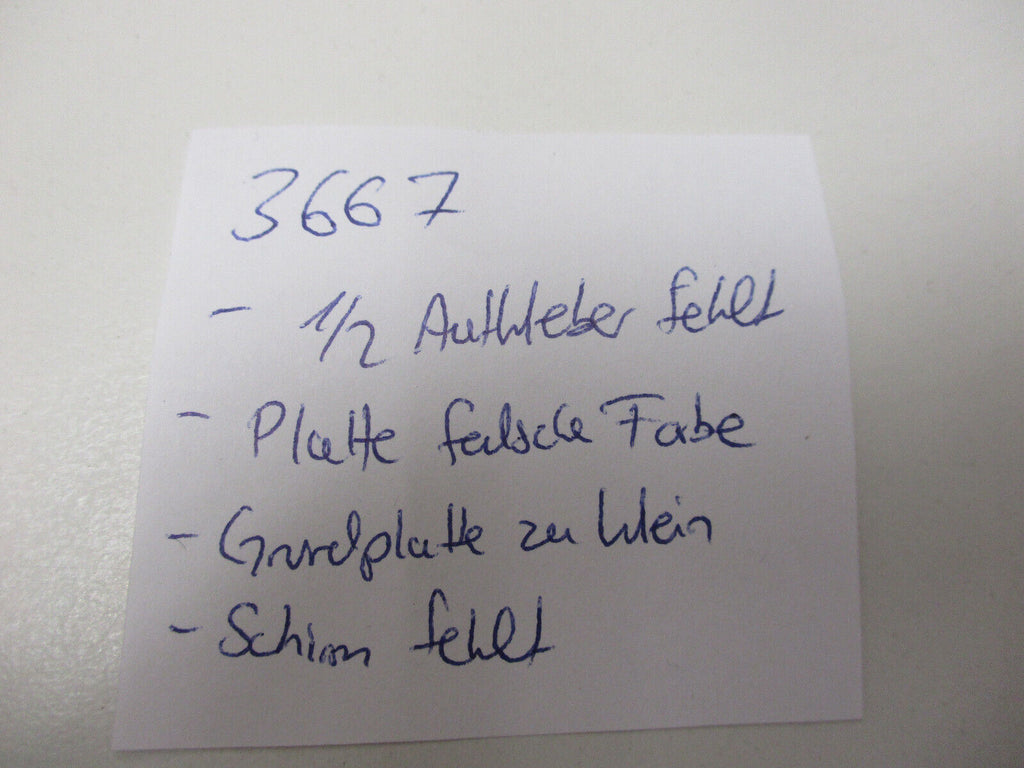 3667
- 1/2 Aufkleber fehlt
- Platte falsche Farbe
- Grundplatte zu klein
- Schirm fehlt